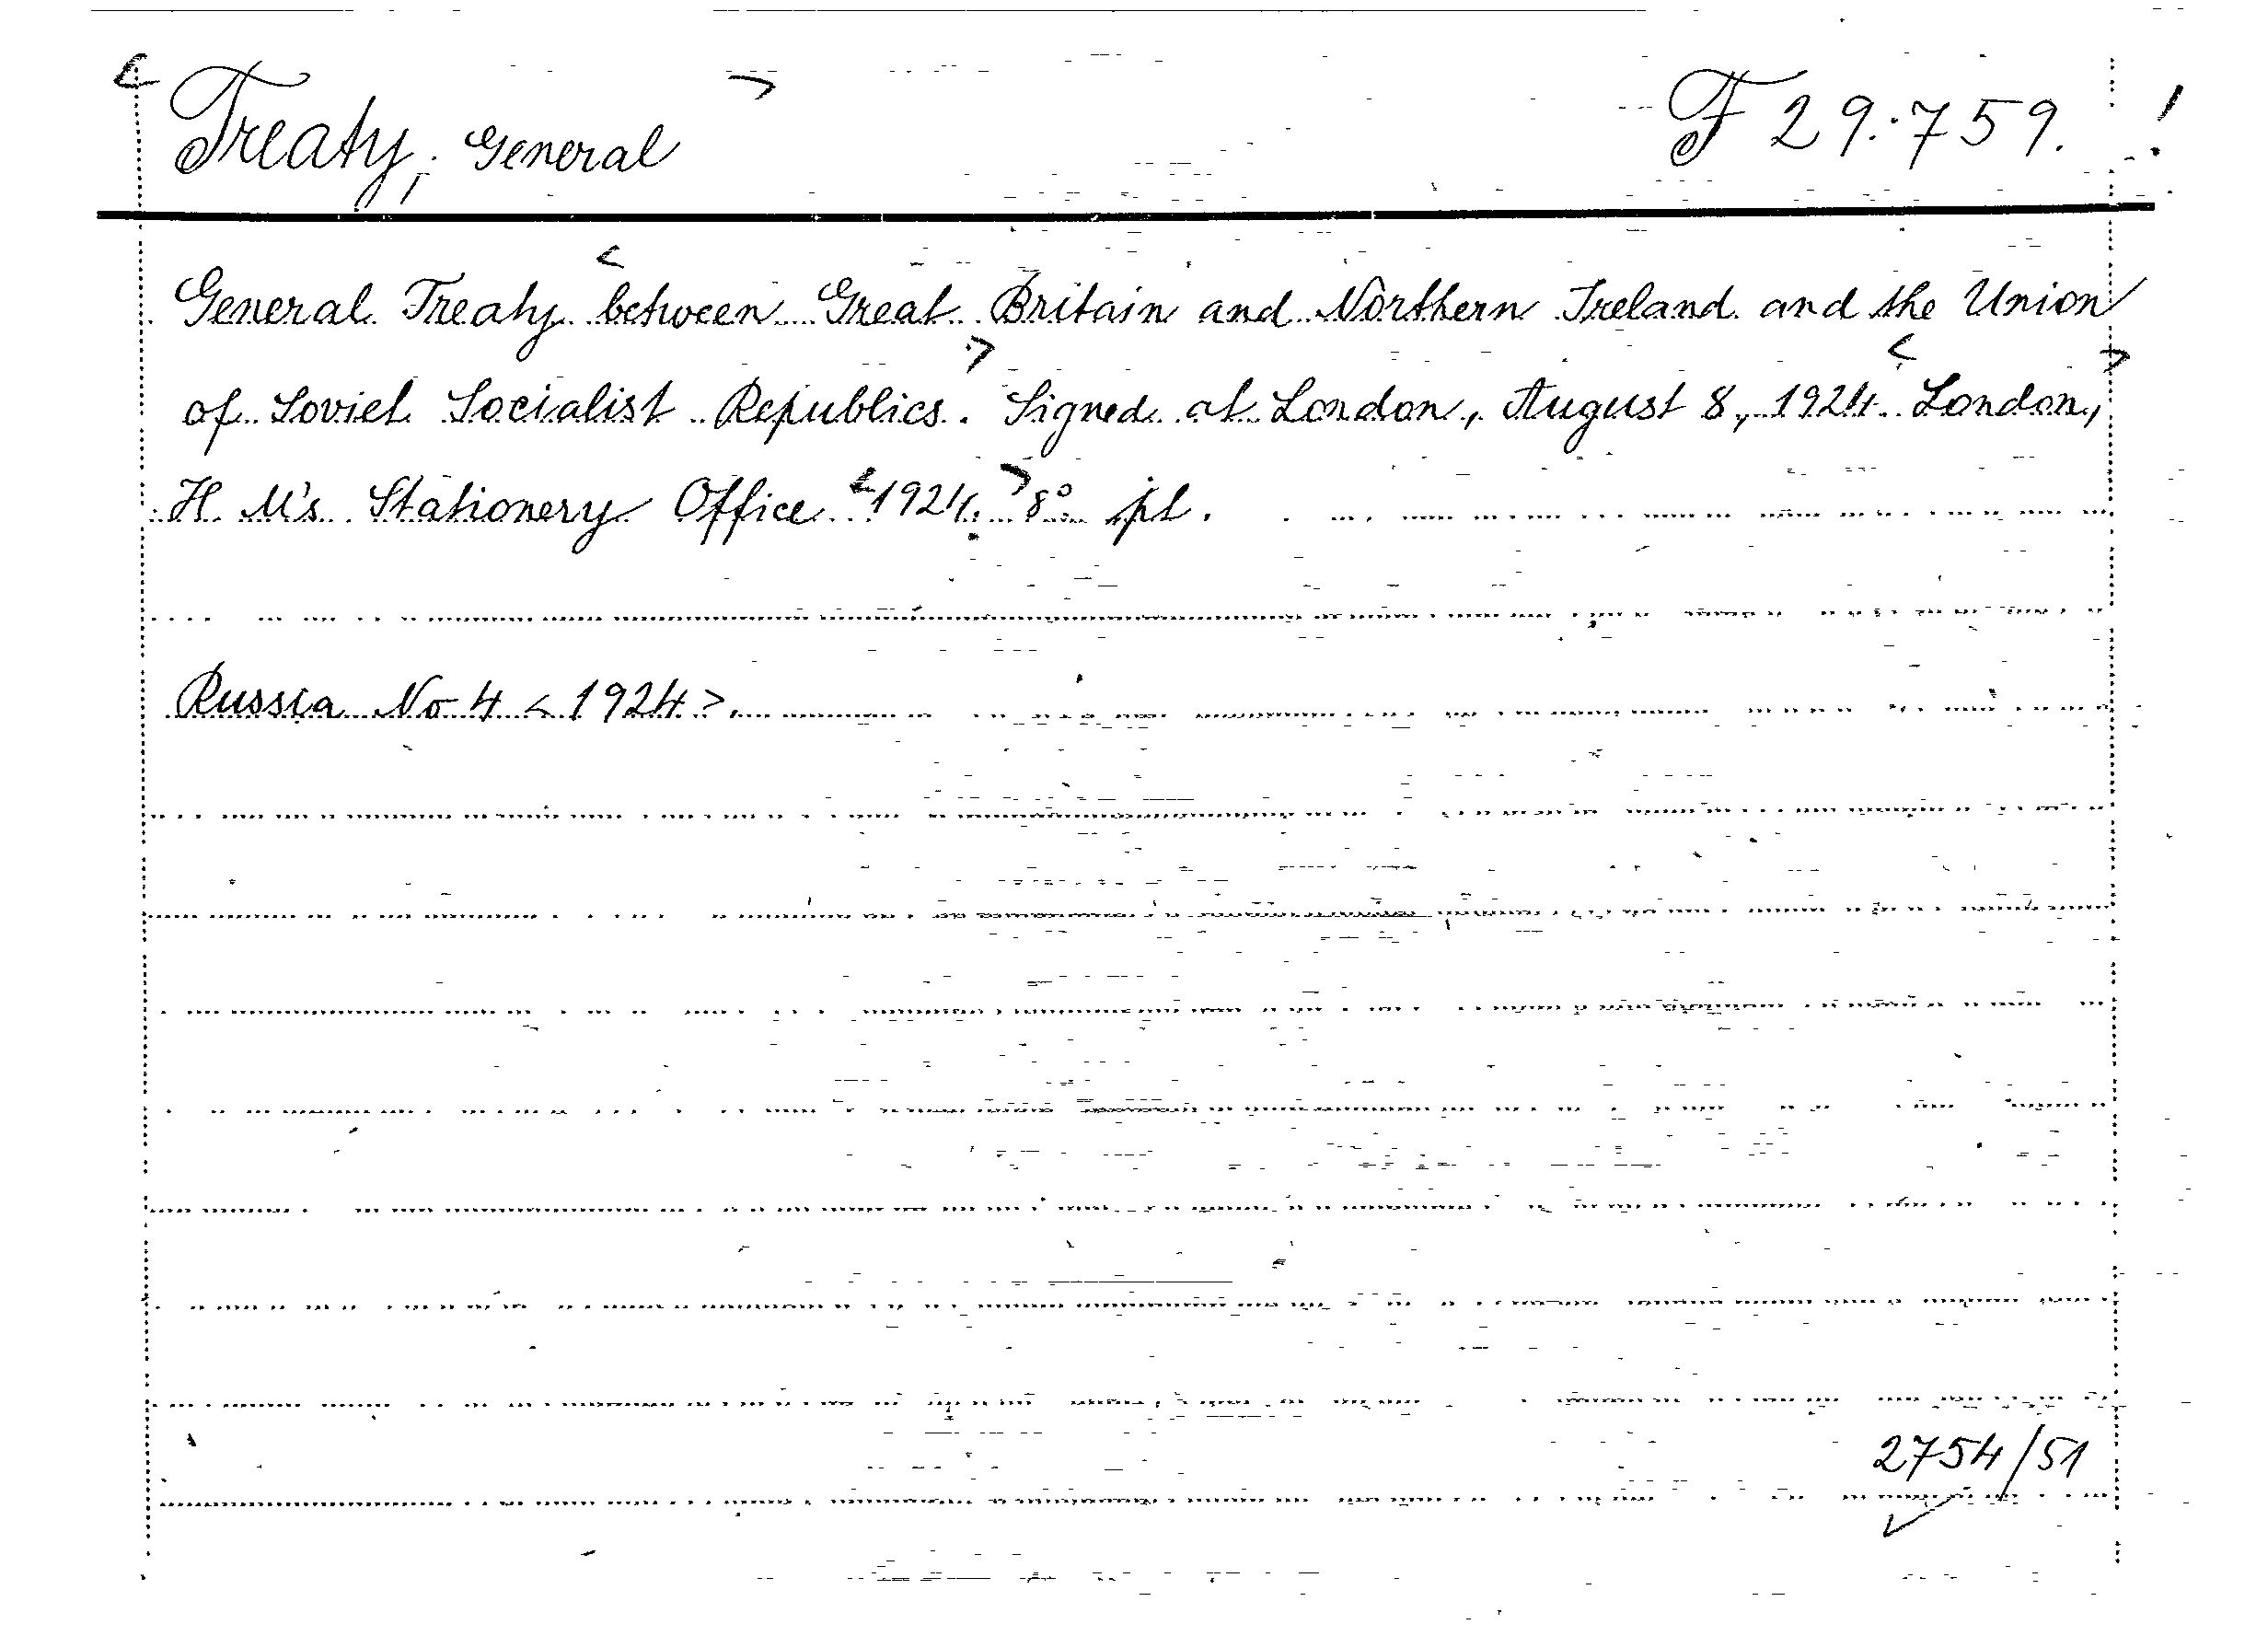 < Treaty, General > F 29.759. !
General Treaty < between Great Britain and Northern Ireland and the Union
of Soviet Socialist Republics. > Signed at London, August 8, 1924. < London, >
H. M's Stationery Office < 1924. > 8° pt.
Russia No 4 < 1924 >.
2754/51